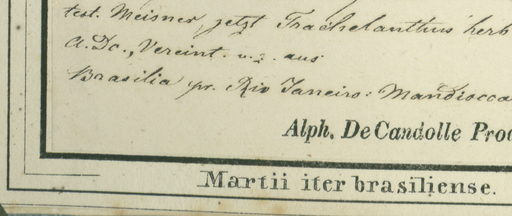 test. Meisner, jetzt Trachelanthus herb
A. Dc., Vereint. u. z. aus
Brasilia pr. Rio Janeiro: Mandiocca
Alph. DeCandolle Pro
Martii iter brasiliense.